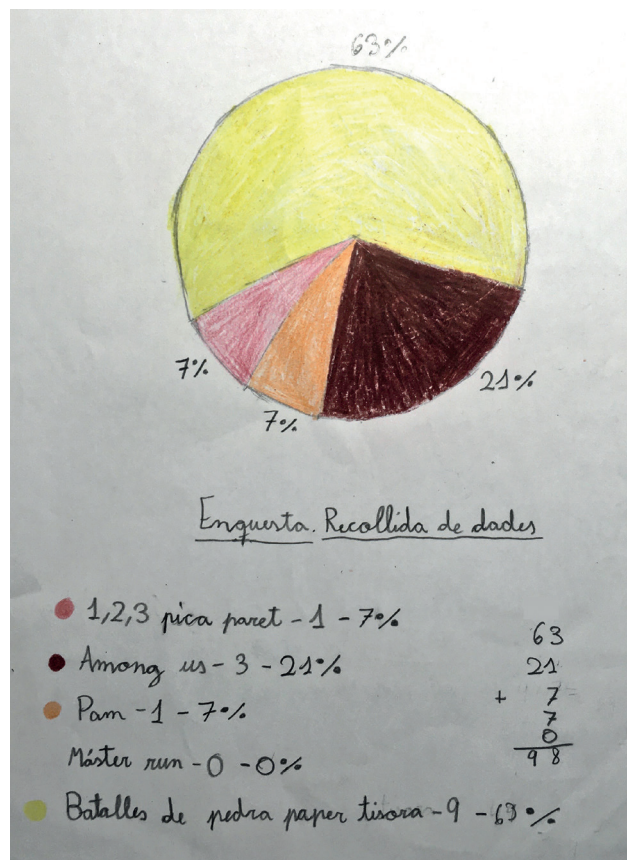 63%
7%
21%
7%
Enquesta. Recollida de dades
1,2,3 pica paret - 1 - 7%
Among us - 3 - 21%
Pam - 1 - 7%
Máster run - 0 - 0%
Batalles de pedra paper tisora - 9 - 63%
63
21
+ 7
7
0
98